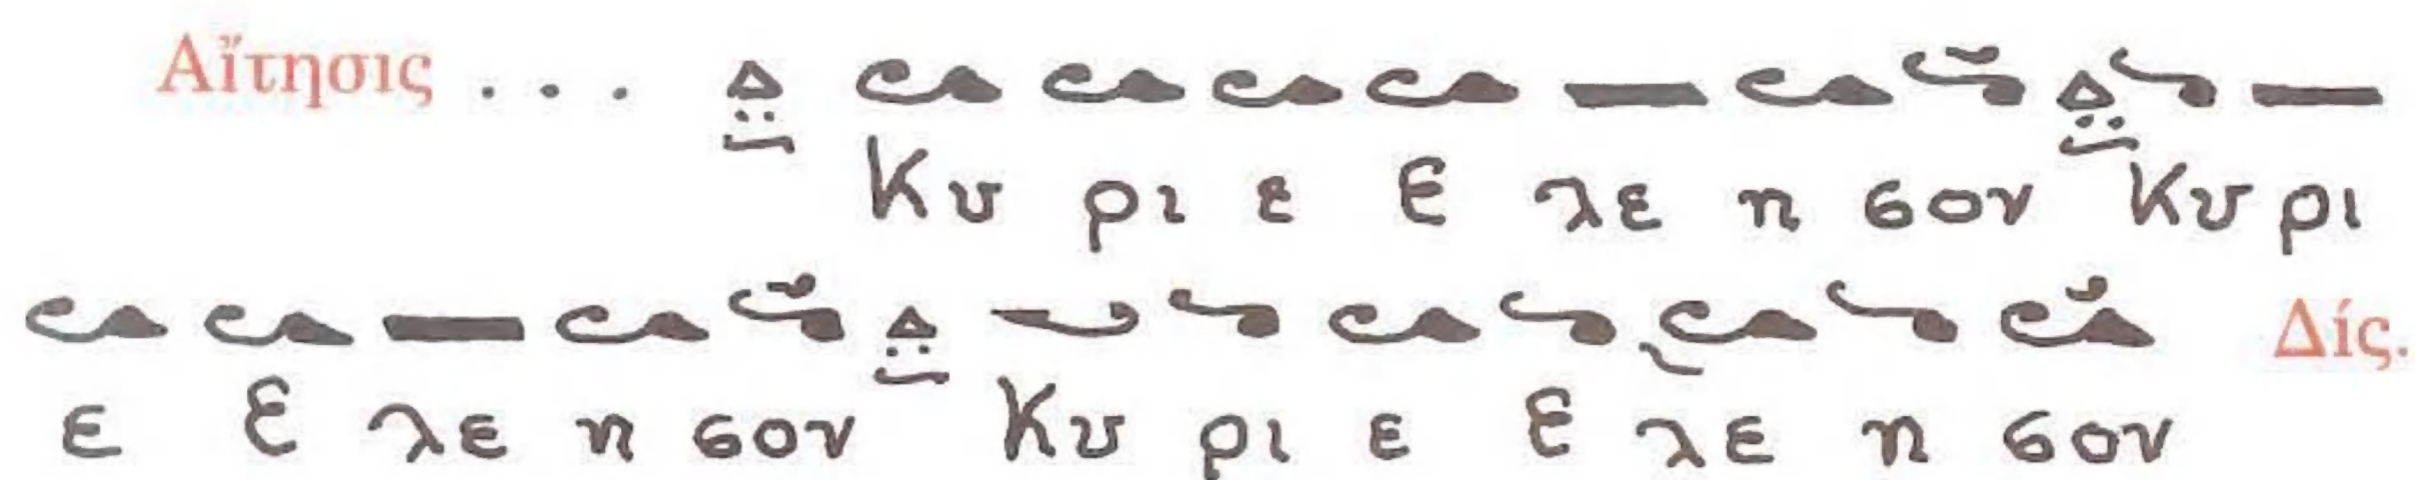 Αἴτησις . . . Δ
Κυ ρι ε ε λε η σον Δ Κυ ρι
ε ε λε η σον Δ Κυ ρι ε ε λε η σον Δίς.